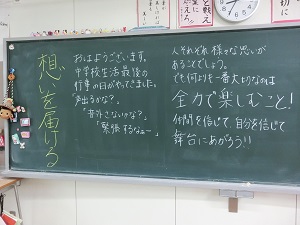 想いを届ける
おはようございます。
中学校生活最後の
行事の日がやってきました。
「声出るかな?」
「音外さないかな?」
「緊張するなぁー」
人それぞれ様々な思いが
あることでしょう。
でも何よりも一番大切なのは
全力で楽しむこと!
仲間を信じて、自分を信じて
舞台にあがろう!!